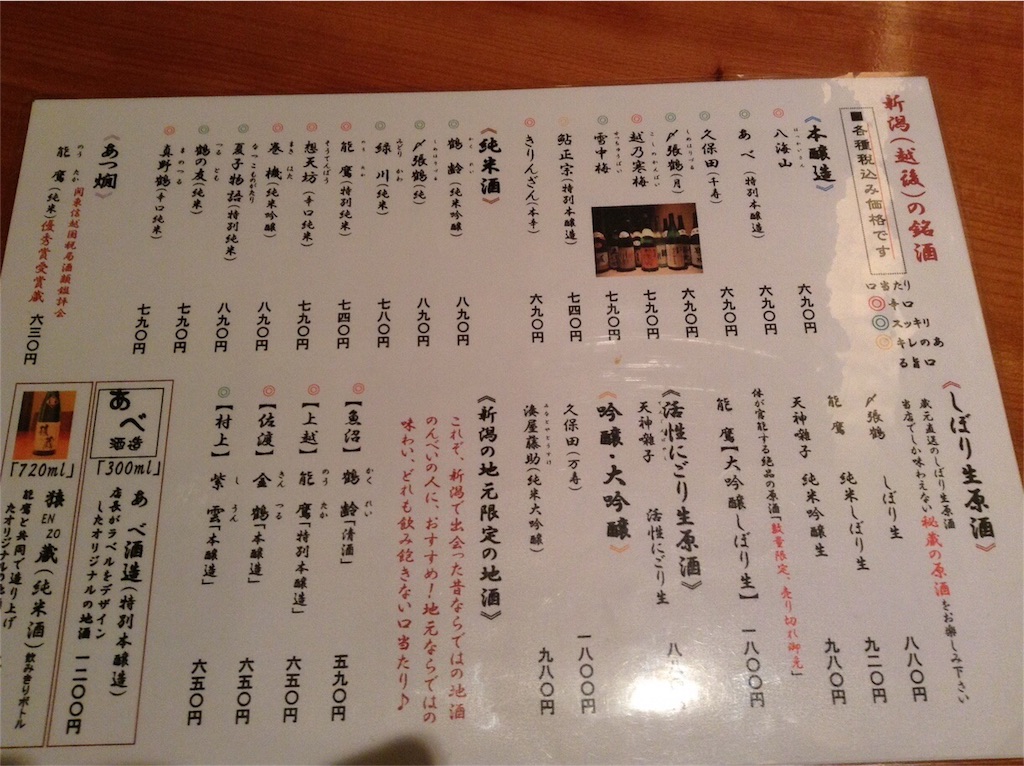 新潟(越後)の銘酒
■各種税込み価格です
口当たり
◎辛口
◎スッキリ
◎キレのあ
る旨口
《本醸造》
◎八海山 はっかいさん 六九〇円
◎あべ(特別本醸造) 六九〇円
◎久保田(千寿) 七九〇円
◎〆張鶴(月) しめはりづる 六九〇円
◎越乃寒梅 こしのかんばい 七九〇円
◎雪中梅 せっちゅうばい 七九〇円
◎鮎正宗(特別本醸造) 七四〇円
◎きりんざん(本辛) 六九〇円
《純米酒》
◎鶴齢(純米吟醸) かくれい 八九〇円
◎〆張鶴(純) しめはりづる 八九〇円
◎緑川(純米) みどりかわ 七八〇円
◎能鷹(特別純米) のうたか 七四〇円
◎想天坊(辛口純米) そうてんぼう 七九〇円
◎巻機(純米吟醸) まきはた 八九〇円
◎夏子物語(特別純米) なつこものがたり 八九〇円
◎鶴の友(純米) つるとも 七九〇円
◎真野鶴(辛口純米) まのつる 七九〇円
《あつ燗》
関東信越国税局酒類鑑評会
能鷹(純米)優秀賞受賞蔵 のうたか 六三〇円
《しぼり生原酒》
蔵元直送のしぼり生原酒
当店でしか味わえない秘蔵の原酒をお楽しみ下さい
〆張鶴 しぼり生 八八〇円
能鷹 純米しぼり生 九二〇円
天神囃子 純米吟醸生 九八〇円
体が官能する絶品の原酒「数量限定、売り切れ御免」
能鷹【大吟醸しぼり生】 一八〇〇円
《活性にごり生原酒》
天神囃子 活性にごり生
《吟醸・大吟醸》
久保田(万寿) 一八〇〇円
湊屋藤助(純米大吟醸) みなとやとうすけ 九八〇円
《新潟の地元限定の地酒》
これぞ、新潟で出会った昔ながらではの地酒
のんべいの人に、おすすめ!地元ならではの
味わい、どれも飲み飽きない口当たり♪
◎【魚沼】鶴齢「清酒」 かくれい 五九〇円
◎【上越】能鷹「特別本醸造」 のうたか 六五〇円
◎【佐渡】金鶴「本醸造」 きんつる 六五〇円
◎【村上】紫雲「本醸造」 しうん 六五〇円
あべ
酒造
「300ml」
あべ酒造(特別本醸造)
店長がラベルをデザイン
したオリジナルの地酒 一二〇〇円
「720ml」
猿蔵(純米酒)飲みきりボトル
ENZO
能鷹と共同で造り上げ
たオリジナルの地